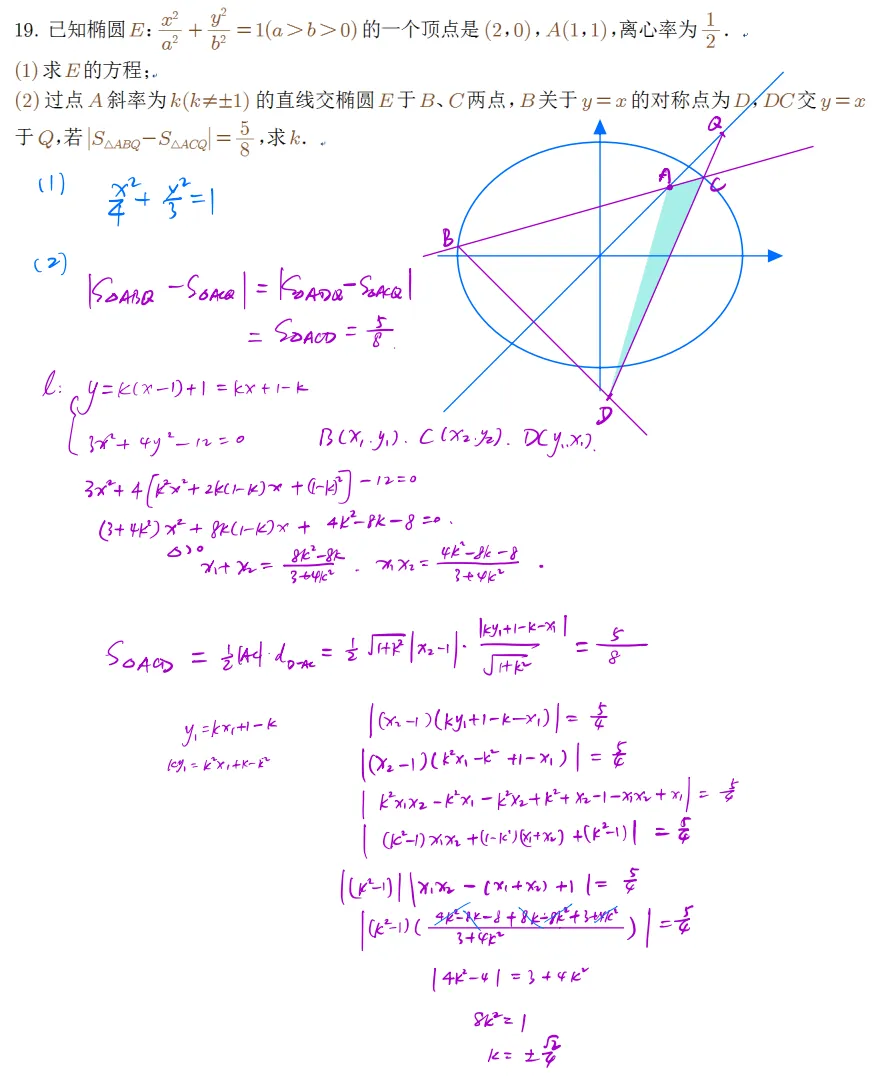 19. 已知椭圆E: x²/a² + y²/b² = 1(a>b>0) 的一个顶点是 (2,0), A(1,1), 离心率为 1/2.
(1) 求E的方程;
(2) 过点 A 斜率为 k(k≠±1) 的直线交椭圆 E 于 B、C 两点, B 关于 y=x 的对称点为 D, DC 交 y=x
于 Q, 若 |S△ABQ−S△ACQ| = 5/8, 求 k.
Q
A
C
B
D
(1) x²/4 + y²/3 = 1
(2)
|S△ABQ − S△ACQ| = |S△ADQ − S△ACQ|
= S△ACD = 5/8.
l: y = k(x−1)+1 = kx+1−k
3x²+4y²−12=0 B(x₁,y₁). C(x₂,y₂). D(y₁,x₁).
3x²+4[k²x²+2k(1−k)x+(1−k)²]−12=0
(3+4k²)x²+8k(1−k)x+4k²−8k−8=0.
△>0
x₁+x₂ = (8k²−8k)/(3+4k²). x₁x₂ = (4k²−8k−8)/(3+4k²).
S△ACD = 1/2|AC|·d_{D-AC} = 1/2 √(1+k²)|x₂−1|·|ky₁+1−k−x₁|/√(1+k²) = 5/8
y₁=kx₁+1−k
ky₁=k²x₁+k−k²
|(x₂−1)(ky₁+1−k−x₁)| = 5/4
|(x₂−1)(k²x₁−k²+1−x₁)| = 5/4
|k²x₁x₂−k²x₁−k²x₂+k²+x₂−1−x₁x₂+x₁| = 5/4
|(k²−1)x₁x₂+(1−k²)(x₁+x₂)+(k²−1)| = 5/4
|(k²−1)||x₁x₂−(x₁+x₂)+1| = 5/4
|(k²−1)((4k²−8k−8+8k−8k²+3+4k²)/(3+4k²))| = 5/4
|4k²−4| = 3+4k²
8k²=1
k=±√2/4